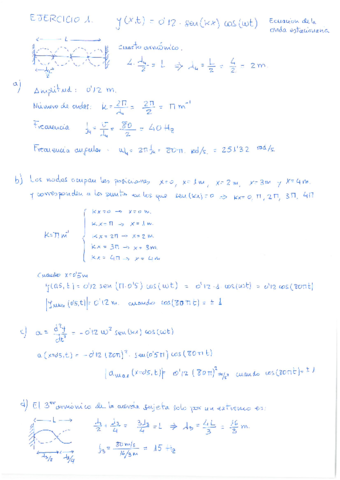 EJERCICIO 1   y(x,t) = 0'12 · sen(kx) cos(ωt)   Ecuación de la
onda estacionaria
cuarto armónico.
4 λ₄/2 = L ⇒ λ₄ = L/2 = 4/2 = 2m
a)
Amplitud: 0'12 m.
Número de onda: k = 2π/λ₄ = 2π/2 = π m⁻¹
Frecuencia f₄ = v/λ₄ = 80/2 = 40 Hz
Frecuencia angular: ω₄ = 2πf₄ = 80π rad/s = 251'32 rad/s
b) Los nodos ocupan las posiciones x=0, x=1m, x=2m, x=3m y x=4m
y corresponden a los puntos en los que sen(kx)=0 ⇒ kx=0, π, 2π, 3π, 4π
kx=0 → x=0m.
kx=π → x=1m.
k=π m⁻¹ kx=2π → x=2m
kx=3π → x=3m.
kx=4π → x=4m
Cuando x=0'5m
y(0,5,t) = 0'12 sen(π·0'5) cos(ωt) = 0'12·1 cos(ωt) = 0'12 cos(80πt)
|y max (0'5,t)| = 0'12 m cuando cos(80πt) = ±1
c) a = d²y/dt² = -0'12 ω² sen(kx) cos(ωt)
a(x=0'5,t) = -0'12 (80π)² · sen(0'5π) cos(80πt)
|a max (x=0'5,t)| = 0'12 (80π)² m/s² cuando cos(80πt) = ±1
d) El 3er armónico de la cuerda sujeta solo por un extremo es:
L
λ₃/2 + λ₃/4 = 3λ₃/4 = L ⇒ λ₃ = 4L/3 = 16/3 m
λ₃/2 λ₃/4
f₃ = 80m/s / 16/3 m = 15 Hz